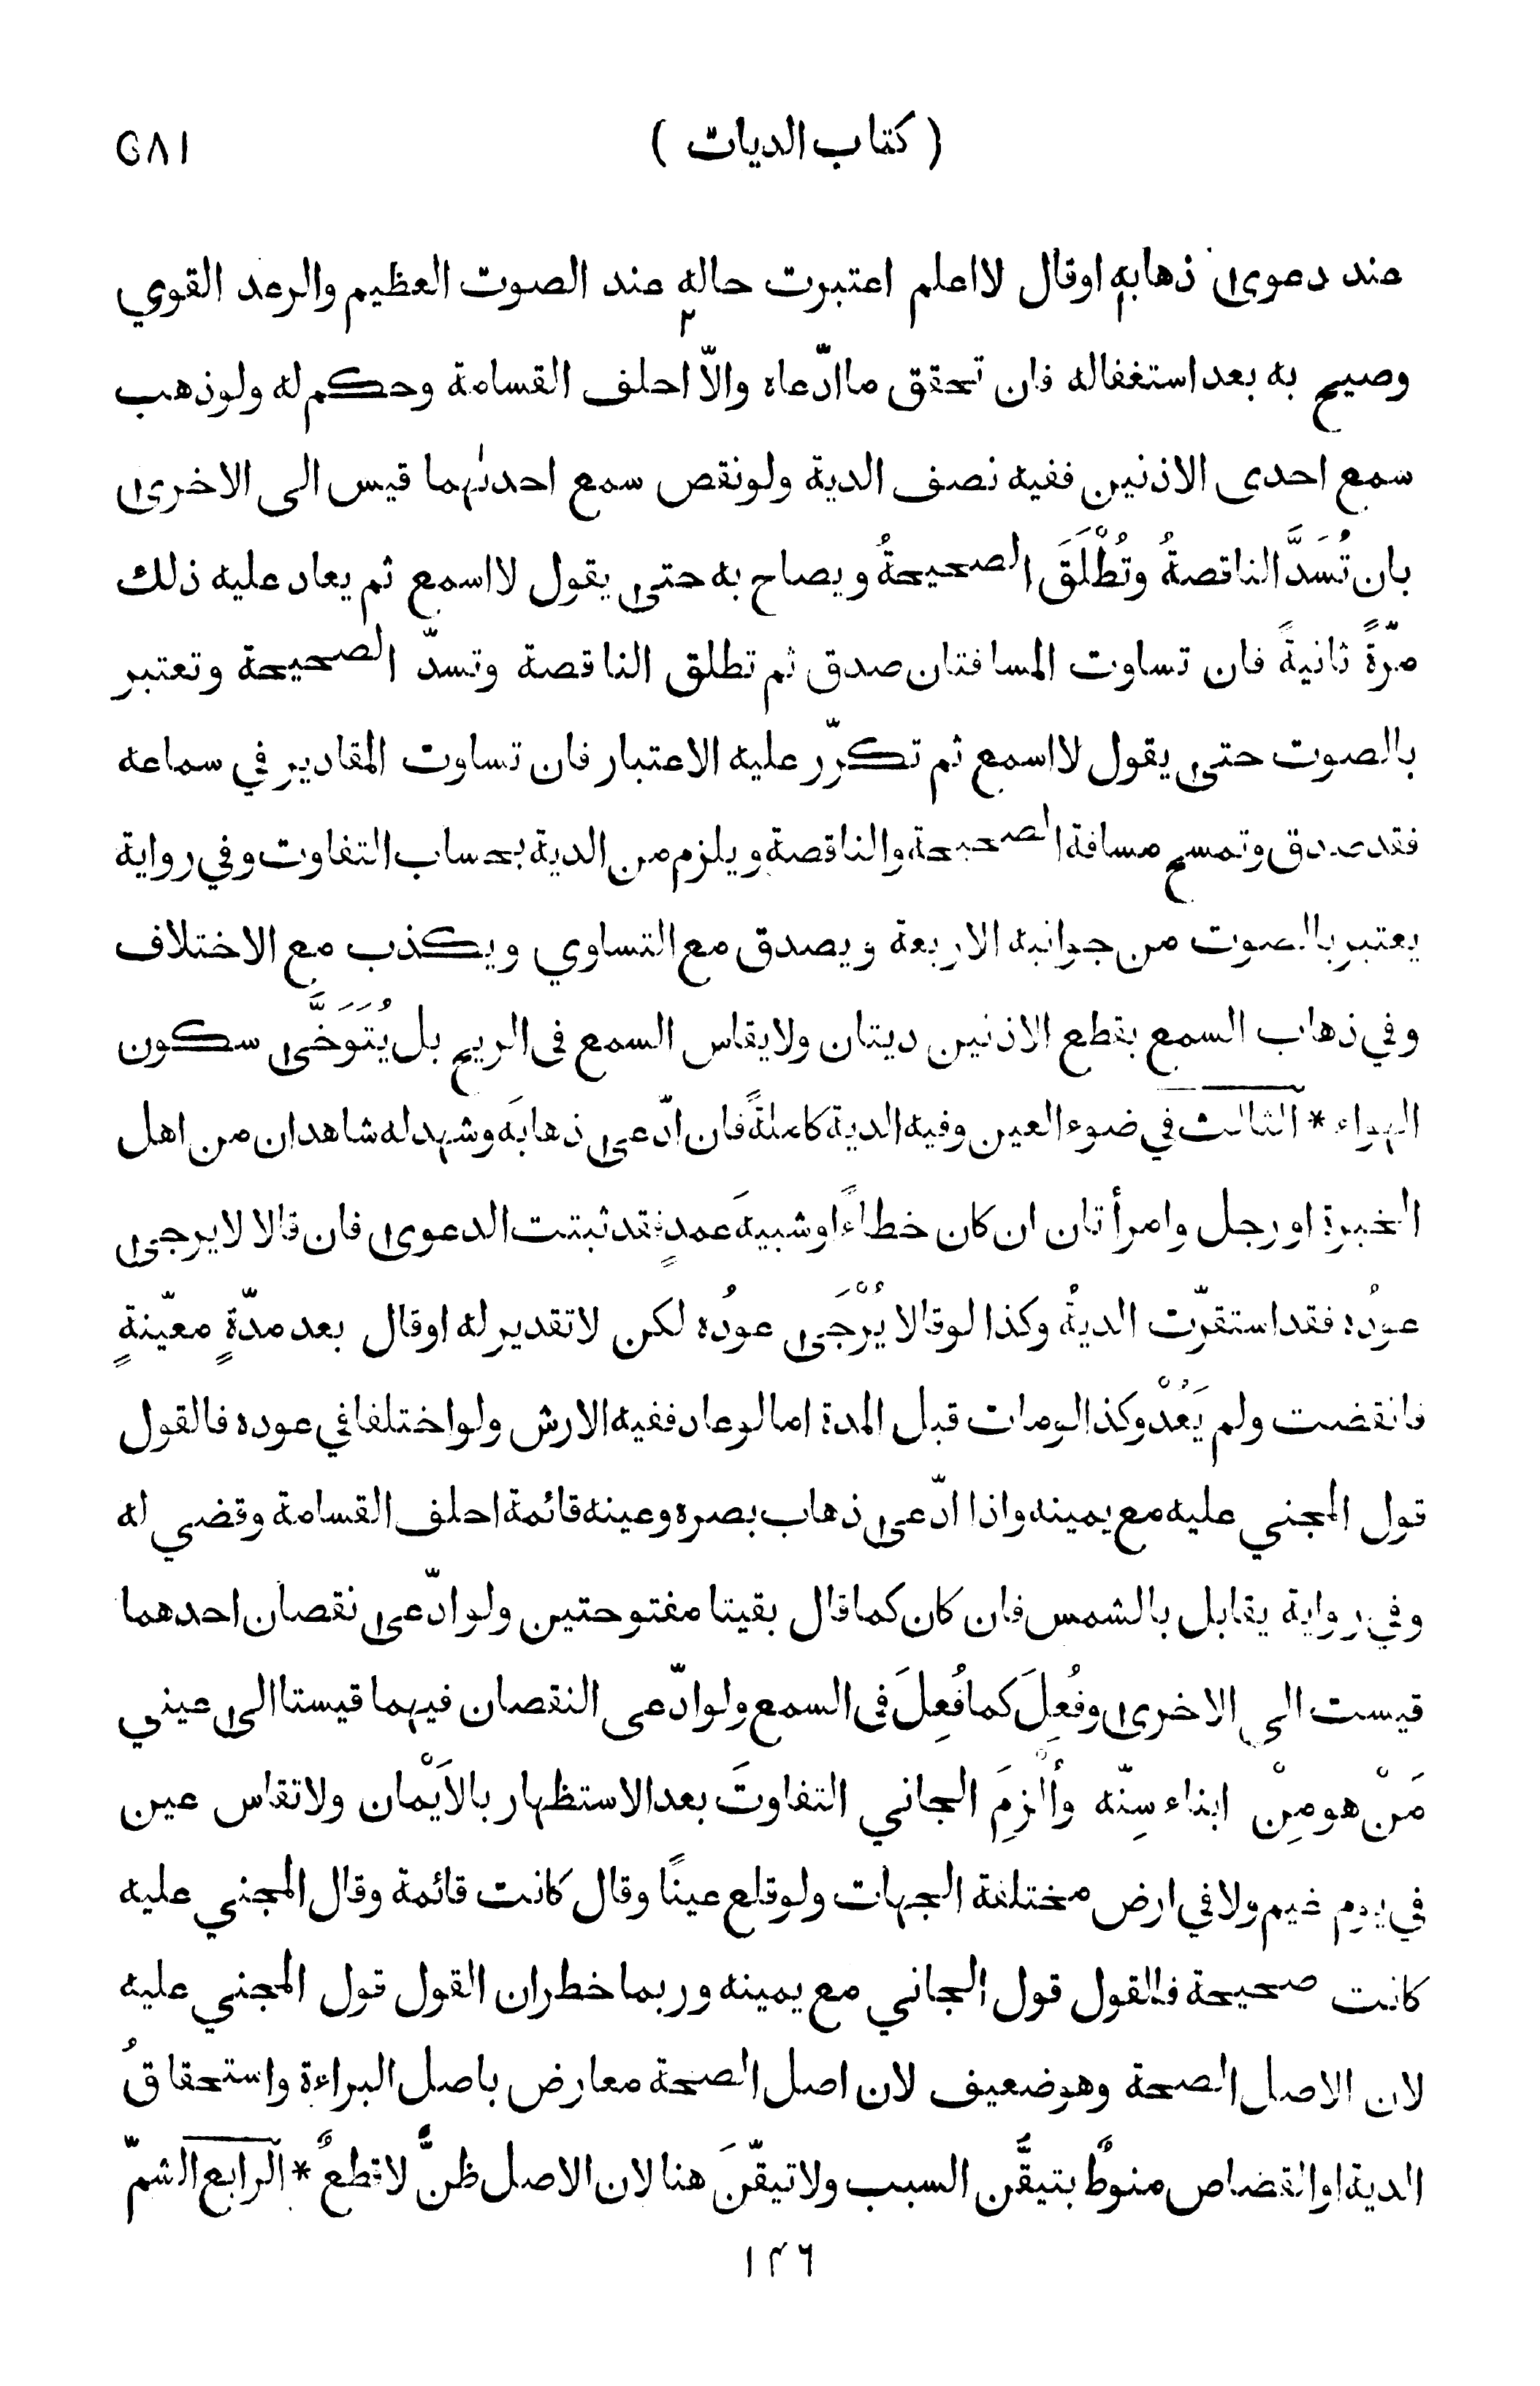 ( كتاب الديات ) ٥٨١
عند دعوى ذهابه اوقال لااعلم اعتبرت حاله عند الصوت العظيم والرعد القوي
وصيح به بعد استغفاله فان تحقق ماادّعاه والاّ احلف القسامة وحكم له ولوذهب
سمع احدى الاذنين ففيه نصف الدية ولونقص سمع احدٰيهما قيس الى الاخرى
بان تُسَدَّ الناقصةُ وتُطْلَقَ الصحيحةُ ويصاح به حتى يقول لااسمع ثم يعاد عليه ذلك
مرّةً ثانيةً فان تساوت المسافتان صدق ثم تطلق الناقصة وتسدّ الصحيحة وتعتبر
بالصوت حتى يقول لااسمع ثم تكرّر عليه الاعتبار فان تساوت المقادير في سماعه
فقد صدق وتمسح مسافة الصحيحة والناقصة ويلزم من الدية بحساب التفاوت وفي رواية
يعتبر بالصوت من جوانبه الاربعة ويصدق مع التساوي ويكذب مع الاختلاف
وفي ذهاب السمع بقطع الاذنين ديتان ولايقاس السمع فى الريح بل يُتَوَخَّى سكون
الهواء * الثالث في ضوء العين وفيه الدية كاملةً فان ادّعى ذهابَه وشهد له شاهدان من اهل
الخبرة او رجل وامرأتان ان كان خطاءً اوشبيهَ عمدٍ فقد ثبتت الدعوى فان قالا لايرجى
عودُه فقد استقرّت الديةُ وكذا لوقالا يُرْجَى عودُه لكن لاتقدير له اوقال بعد مدّةٍ معيّنةٍ
فانقضت ولم يَعُدْ وكذا لومات قبل المدة اما لوعاد ففيه الارش ولواختلفا في عوده فالقول
قول المجني عليه مع يمينه واذا ادّعى ذهاب بصره وعينه قائمة احلف القسامة وقضي له
وفي رواية يقابل بالشمس فان كان كماقال بقيتا مفتوحتين ولو ادّعى نقصان احدهما
قيست الى الاخرى وفُعِلَ كمافُعِلَ فى السمع ولوادّعى النقصان فيهما قيستا الى عيني
مَنْ هومِنْ ابناء سِنّه وأُلْزِمَ الجاني التفاوتَ بعد الاستظهار بالاَيْمان ولاتقاس عين
في يوم غيم ولافي ارض مختلفة الجهات ولوقلع عينًا وقال كانت قائمة وقال المجني عليه
كانت صحيحة فالقول قول الجاني مع يمينه وربما خطر ان القول قول المجني عليه
لان الاصل الصحة وهوضعيف لان اصل الصحة معارض باصل البراءة واستحقاقُ
الدية اوالقصاص منوطٌ بتيقَّن السبب ولاتيقّنَ هنا لان الاصل ظنٌّ لاقطعٌ * الرابع الشمّ
١٤٦